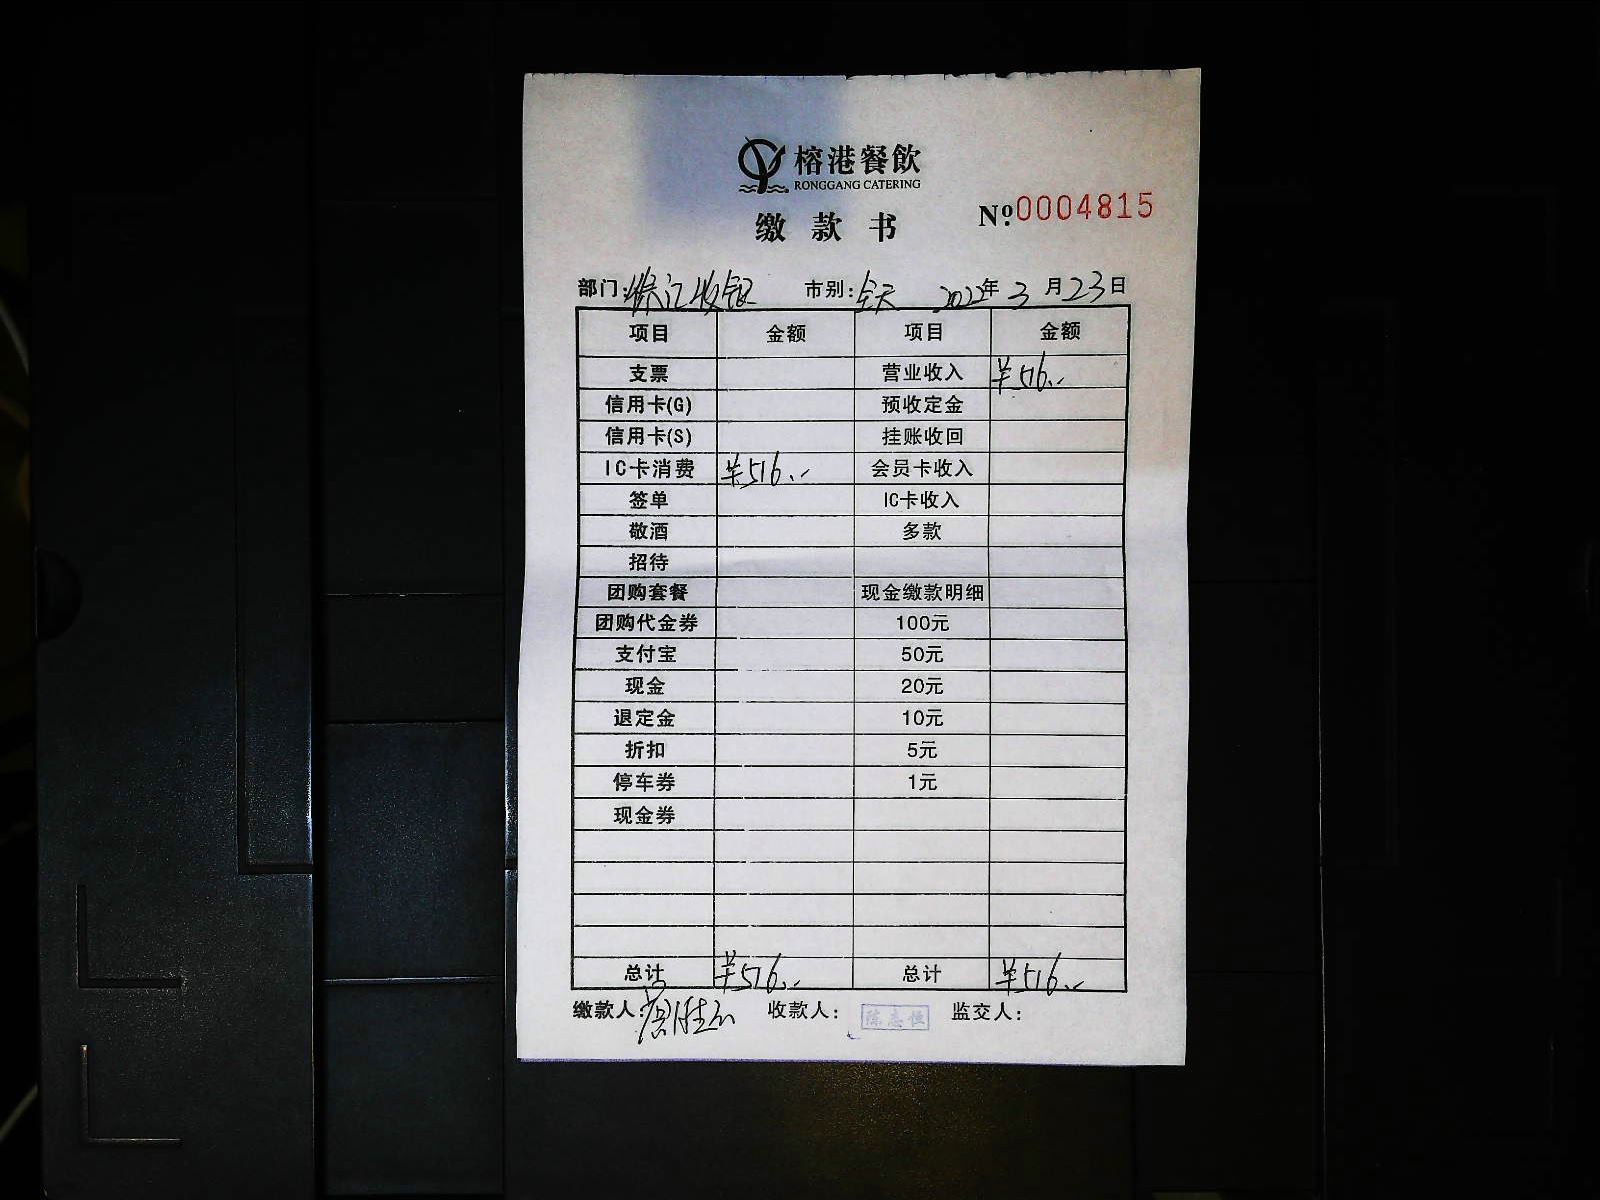 榕港餐飲
RONGGANG CATERING
缴款书
№0004815
部门: 收银 市别: 全天 2022年3月23日
项目 金额 项目 金额
支票 营业收入 ¥516.-
信用卡(G) 预收定金
信用卡(S) 挂账收回
IC卡消费 ¥516.- 会员卡收入
签单 IC卡收入
敬酒 多款
招待
团购套餐 现金缴款明细
团购代金券 100元
支付宝 50元
现金 20元
退定金 10元
折扣 5元
停车券 1元
现金券
总计 ¥516.- 总计 ¥516.-
缴款人: 收款人: 陈志恒 监交人: